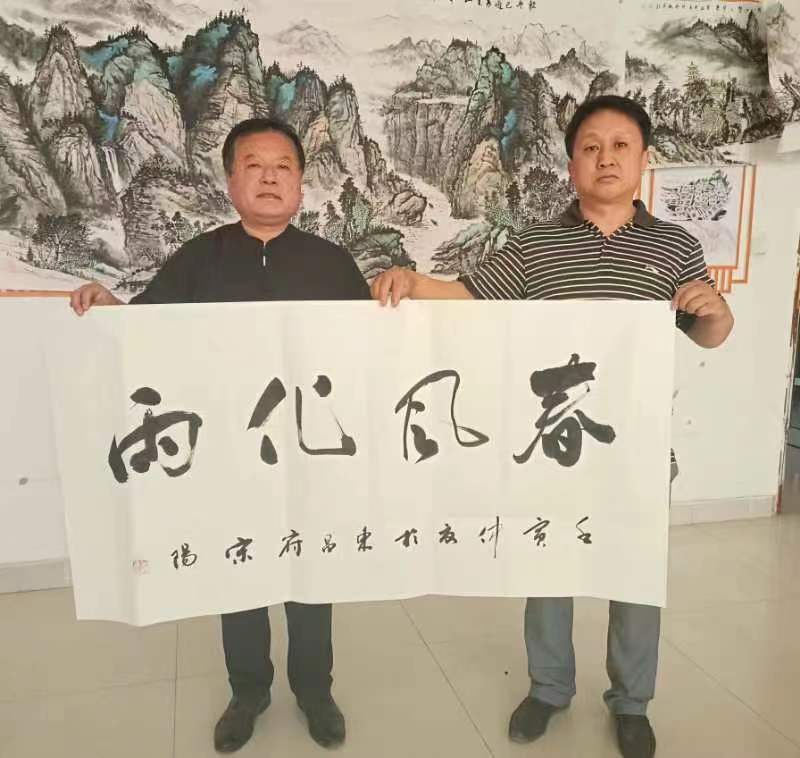 春风化雨
壬寅仲夏於東昌府宋陽